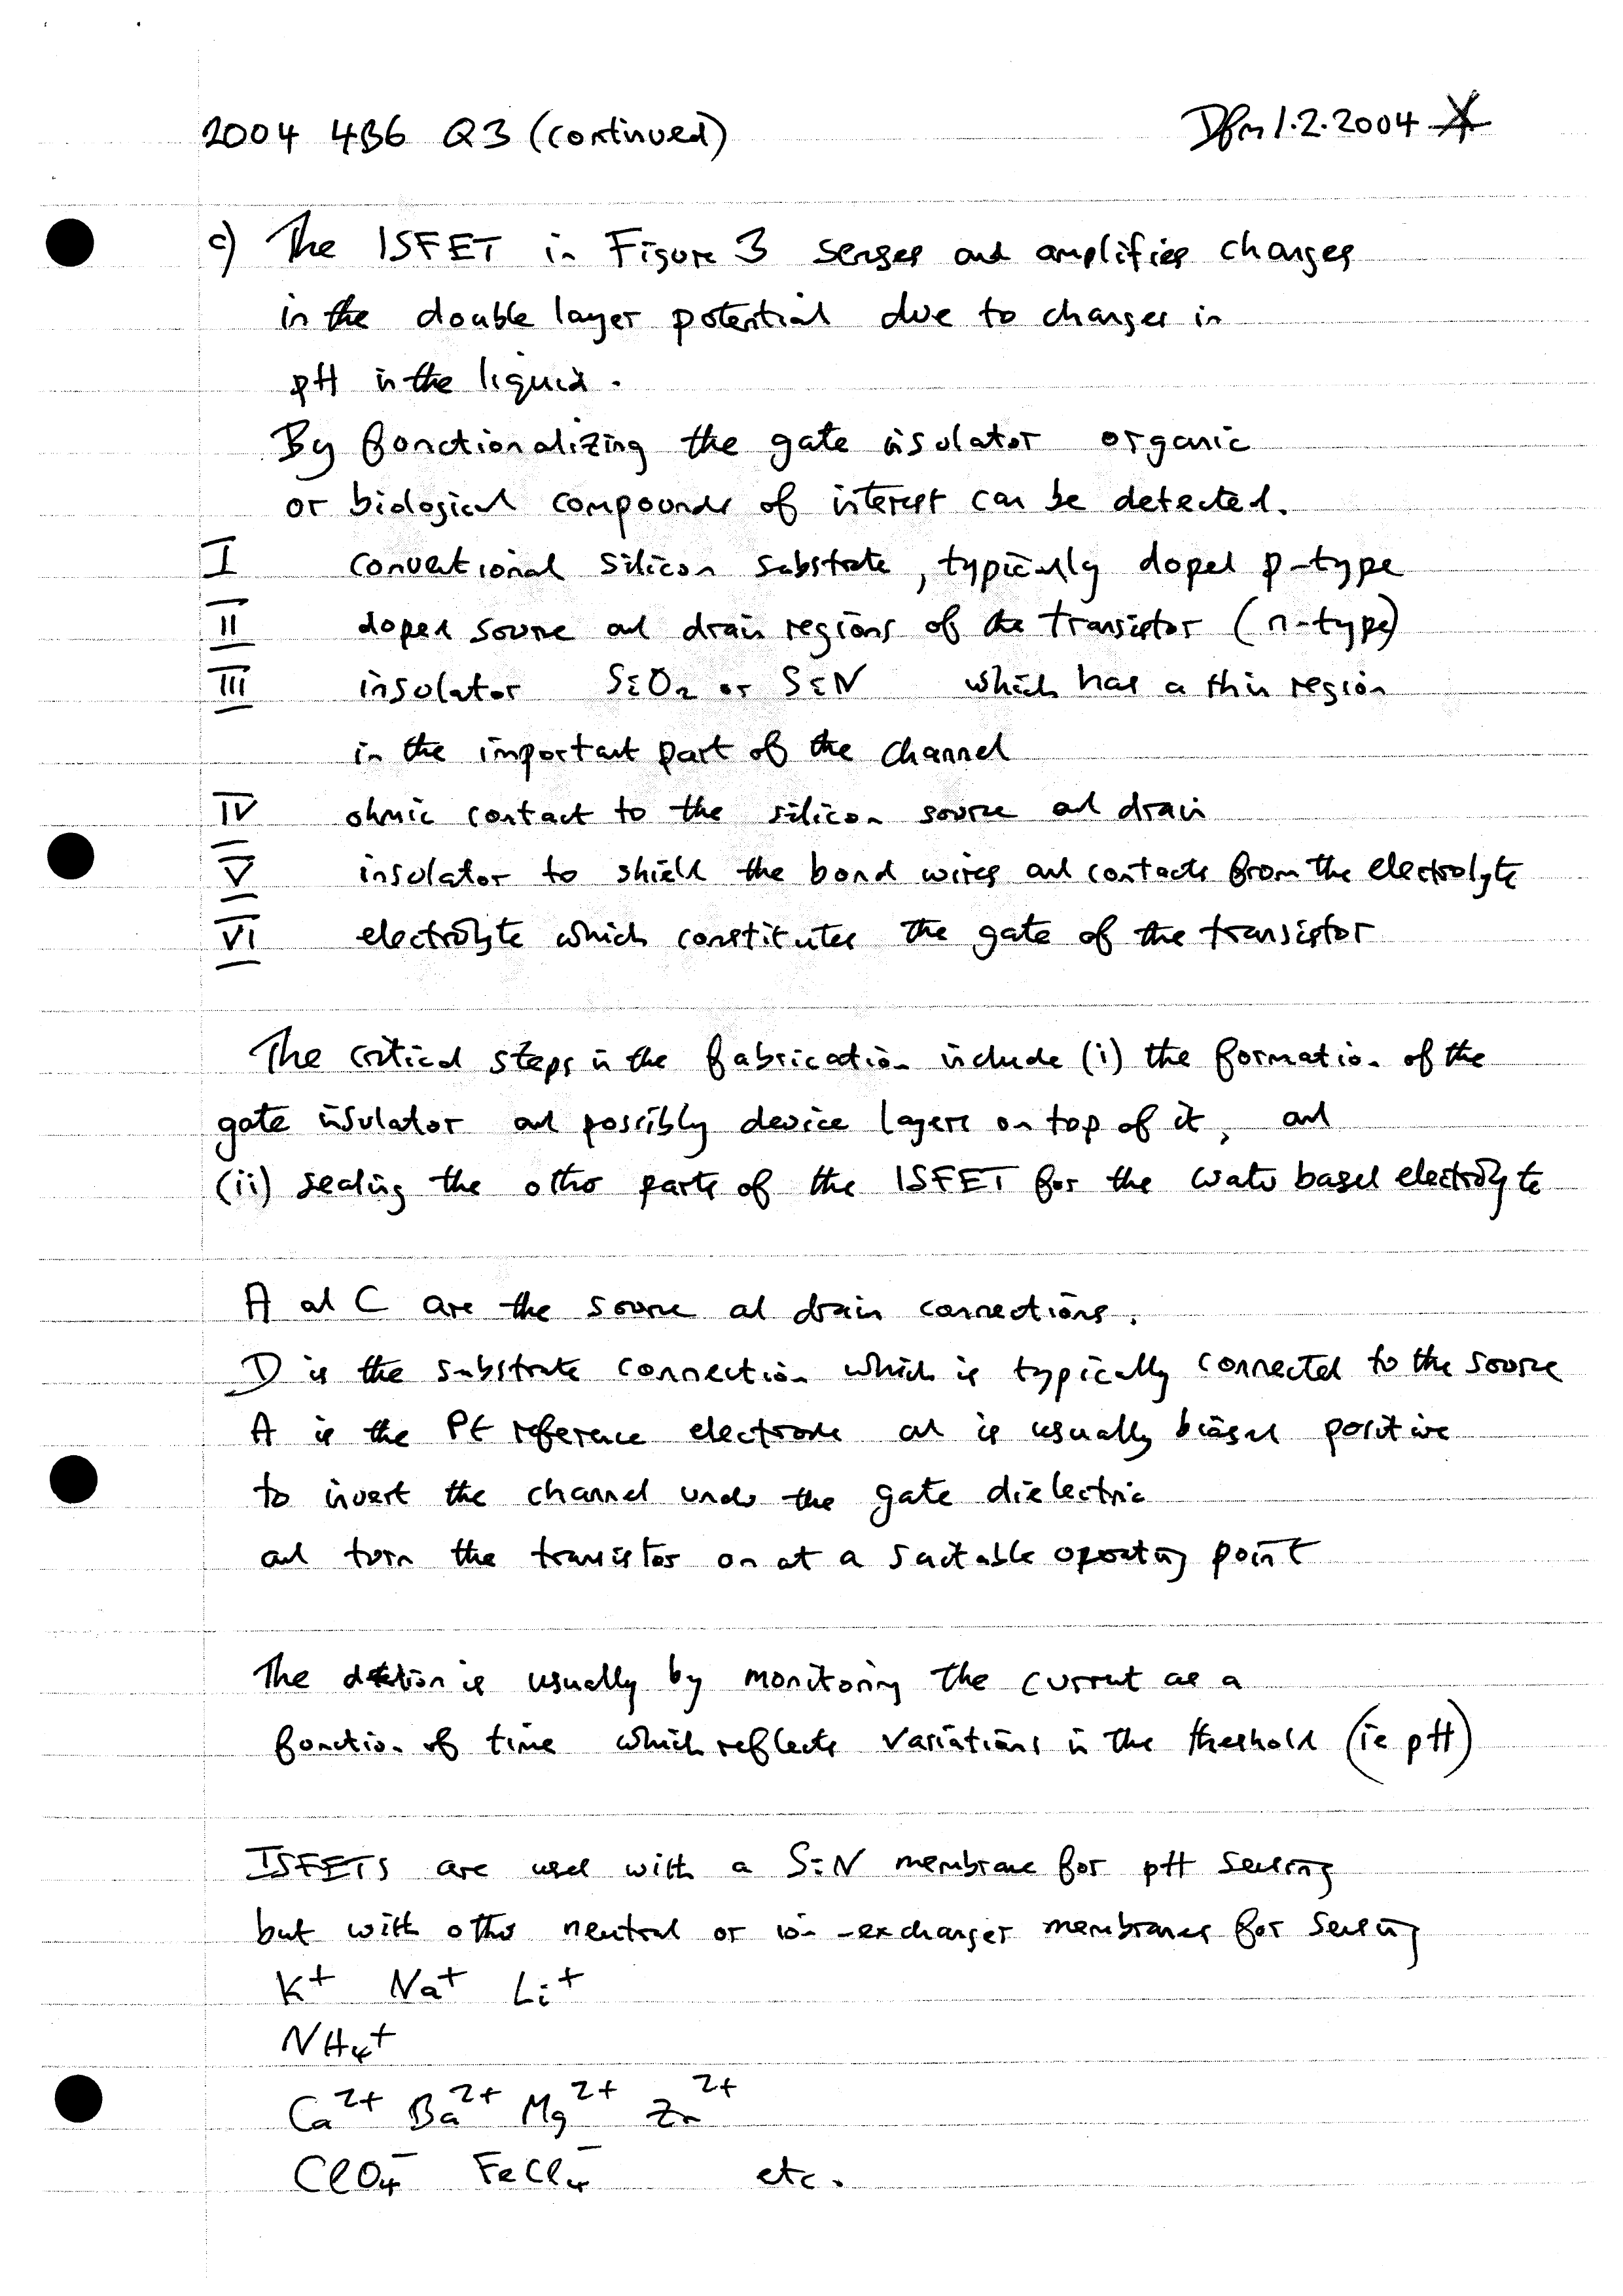 2004 4B6 Q3 (continued)
1.2.2004
c) The ISFET in Figure 3 senses and amplifies changes
in the double layer potential due to changes in
pH in the liquid.
By functionalizing the gate insulator organic
or biological compounds of interest can be detected.
I conventional silicon substrate, typically doped p-type
II doped source and drain regions of the transistor (n-type)
III insulator SiO2 or SiN which has a thin region
in the important part of the channel
IV ohmic contact to the silicon source and drain
V insulator to shield the bond wires and contacts from the electrolyte
VI electrolyte which constitutes the gate of the transistor
The critical steps in the fabrication include (i) the formation of the
gate insulator and possibly device layers on top of it, and
(ii) sealing the other parts of the ISFET for the water based electrolyte
A and C are the source and drain connections.
D is the substrate connection which is typically connected to the source
A is the Pt reference electrode and is usually biased positive
to invert the channel under the gate dielectric
and turn the transistor on at a suitable operating point
The detection is usually by monitoring the current as a
function of time which reflects variations in the threshold (ie pH)
ISFETS are used with a SiN membrane for pH sensing
but with other neutral or ion-exchanger membranes for sensing
K+ Na+ Li+
NH4+
Ca2+ Ba2+ Mg2+ Zn2+
ClO4- FeCl4- etc.